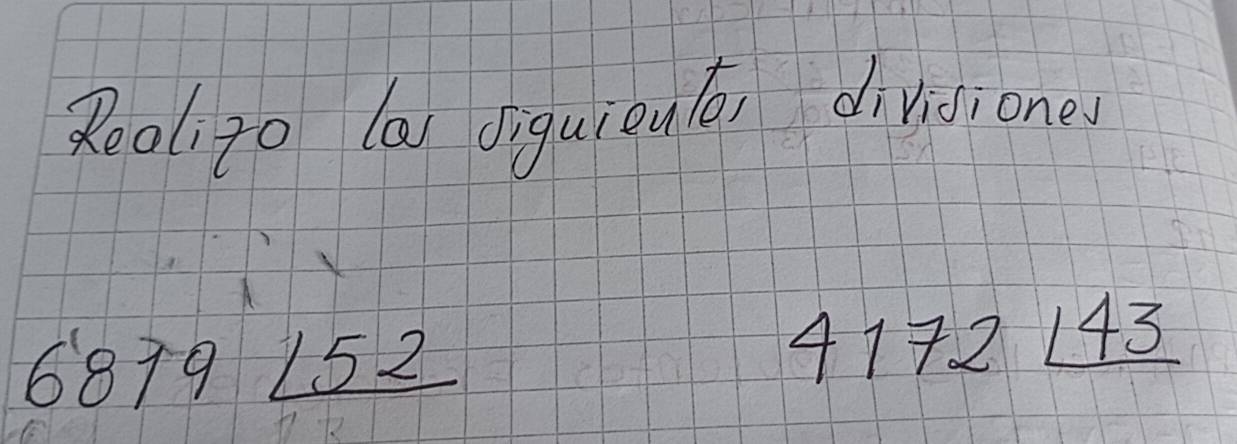 Realizo las siguientes divisiones
6819 52 4172 43